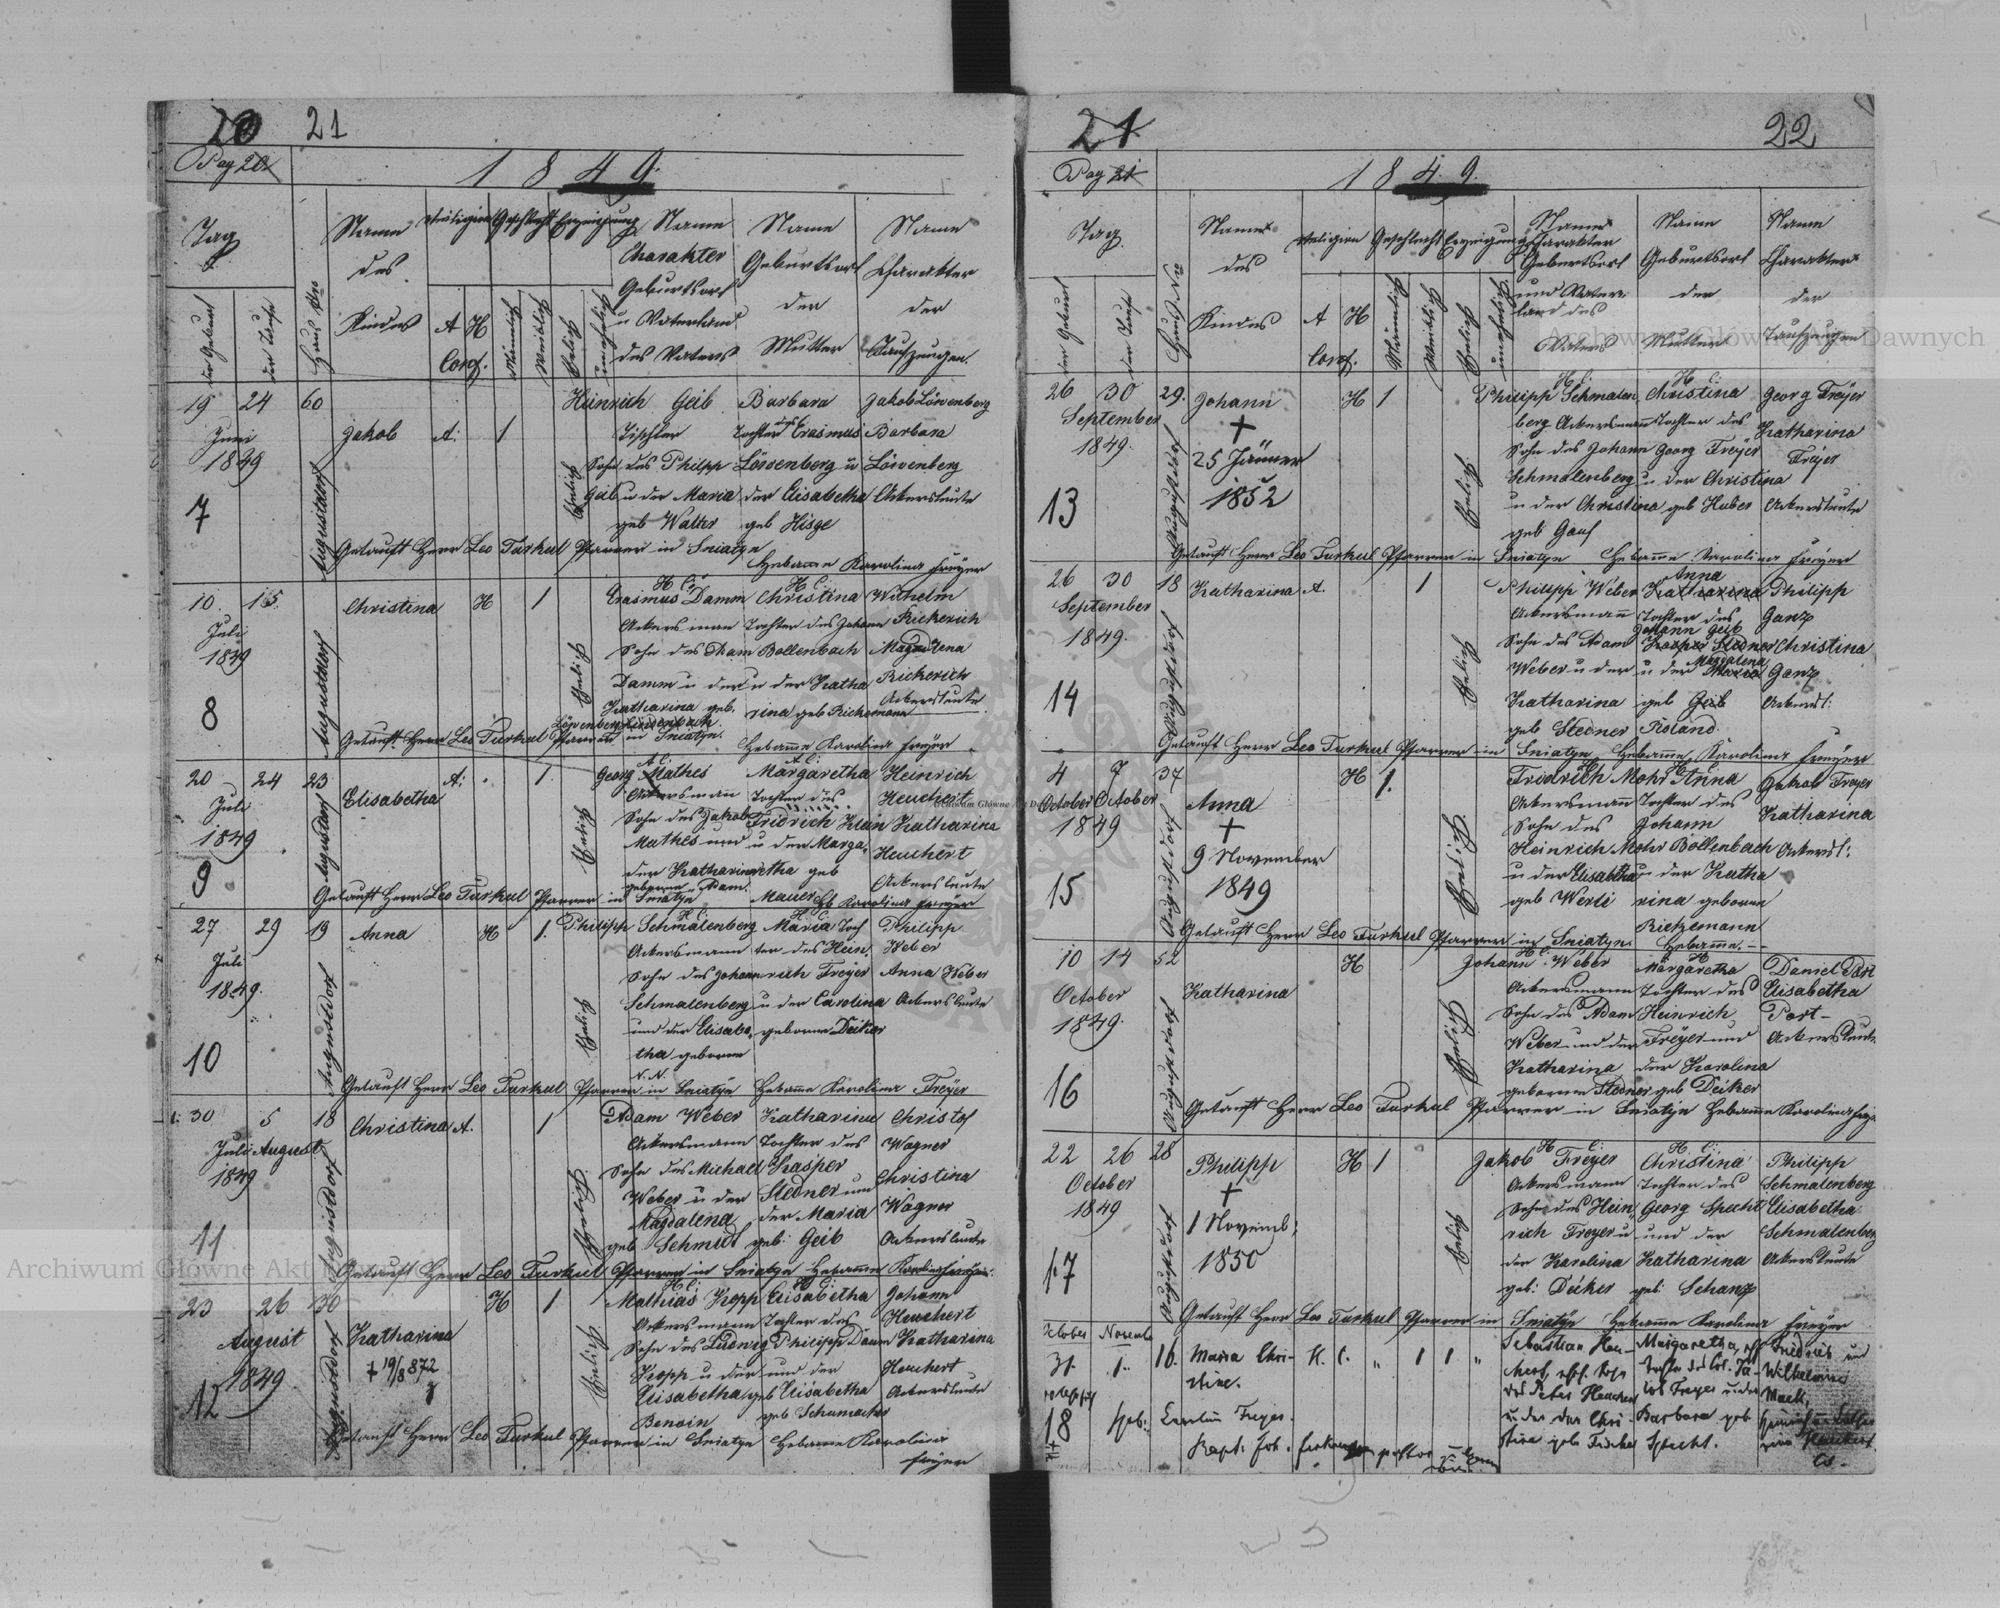 20 21
Pag 20
1849.
Tag
der Geburt
der Taufe
Haus Nro
Name
des
Kindes
Religion
A H
Conf.
Geschlecht
Männlich
Weiblich
Erzeigung
Ehelich
unehelich
Name
Charakter
Geburtsort
u Vaterland
des Vaters
Name
Geburtsort
der
Mutter
Name
Charakter
der
Taufzeugen.
19 24 60
Juni
1849
7
Augustdorf
Jakob A: 1
Ehelich
Heinrich Geib
Tischler
Sohn des Philipp
Geib u der Maria
geb Walter
Barbara
Tochter des Erasmus
Löwenberg u
der Elisabetha
geb Hisge
Jakob Löwenberg
Barbara
Löwenberg
Ackersleute
Getauft Herr Leo Turkul Pfarrer in Sniatyn
Hebamme Karolina Freyer
10. 15.
Juli
1849
8
Augustdorf
Christina H 1
Ehelich
H C
Erasmus Damm
Ackersman
Sohn des Adam
Damm u der
Katharina geb.
Löwenberg
H C
Christina
Tochter des Johann
Bollenbach
u der Katha
rina geb Richemann
Wilhelm
Rickerich
Magdalena
Rickerich
Ackersleute
Getauft Herr Leo Turkul Pfarrer in Sniatyn.
Hebamme Karolina Freyer
20 24 23
Juli
1849
9
Augustdorf
Elisabetha A: 1.
Ehelich
A C:
Georg Mathes
Ackersmann
Sohn des Jakob
Mathes und
der Katharina
geborene Adam.
A C:
Margaretha
Tochter des
Fridrich Klein
u der Marga
retha geb
Mauer
Heinrich
Heuchert
Katharina
Heuchert
Ackersleute
Getauft Herr Leo Turkul Pfarrer in Sniatyn
Hb Karolina Freyer
27 29 19
Juli
1849.
10
Augustdorf
Anna H 1.
Ehelich
H C
Philipp Schmalenberg
Ackersmann
Sohn des Johann
Schmalenberg
und der Elisabe
tha geborene
N. N.
H C
Maria Toch
ter des Hein
rich Freyer
u der Carolina
geborene Deiker
Philipp
Weber
Anna Weber
Ackersleute
Getauft Herr Leo Turkul Pfarrer in Sniatyn Hebamme Karolina Freyer
30 5 18
Juli August
1849
11
Augustdorf
Christina A. 1
Ehelich
Adam Weber
Ackersmann
Sohn des Michael
Weber u der
Magdalena
geb Schmidt
Katharina
Tochter des
Kasper
Stedner und
der Maria
geb: Geib
Christof
Wagner
Christina
Wagner
Ackersleute
Getauft Herr Leo Turkul Pfarrer in Sniatyn Hebamme Karolina Freyer.
23 26 30
August
1849.
12
Augustdorf
Katharina H 1
+ 19/8 872
Ehelich
H C
Mathias Kopp
Ackersmann
Sohn des Ludwig
Kopp u der
Elisabetha geb
Benoin
H C
Elisabetha
Tochter des
Philipp Damm
und der
Elisabetha
geb Schumacher
Johann
Heuchert
Katharina
Heuchert
Ackersleute
Getauft Herr Leo Turkul Pfarrer in Sniatyn Hebamme Karolina
Freyer
21 22
Pag 21
1849.
Tag.
der Geburt
der Taufe
Haus Nro
Name
des
Kindes
Religion
A H
Conf.
Geschlecht
Männlich
Weiblich
Erzeigung
Ehelich
unehelich
Name
Charakter
Geburtsort
und Vater
land des
Vaters
Name
Geburtsort
der
Mutter
Name
Charakter
der
Taufzeugen
26 30 29.
September
1849.
13
Augustdorf
Johann H 1
+
25 Jänner
1852
Ehelich
H C
Philipp Schmalen
berg Ackersmann
Sohn des Johann
Schmalenberg
u der Christina
geb Gauf
H C
Christina
Tochter des
Georg Freyer
u der Christina
geb Huber
Georg Freyer
Katharina
Freyer
Ackersleute
Getauft Herr Leo Turkul Pfarrer in Sniatyn Hebamme Karolina Freyer
26 30 18
September
1849.
14
Augustdorf
Katharina A. 1
Ehelich
Philipp Weber
Ackersmann
Sohn des Adam
Weber u der
Katharina
geb Stedner
Anna
Katharina
Tochter des
Johann Geib
Kasper Stedner
Magdalena
u der Maria
geb Geib
Roland.
Philipp
Ganz
Christina
Ganz
Ackersl:
Getauft Herr Leo Turkul Pfarrer in Sniatyn Hebamme Karolina Freyer
4 7 37
October October
1849
15
Augustdorf
Anna H 1.
+
9 November
1849
Ehelich
H
Fridrich Mohr
Ackersmann
Sohn des
Heinrich Mohr
u der Elisabtha
geb Werli
H C
Anna
Tochter des
Johann
Bollenbach
u der Katha
rina geboren
Rietzemann
Jakob Freyer
Katharina
Ackersl:
Getauft Herr Leo Turkul Pfarrer in Sniatyn. Hebamme. –
10 14 52
October
1849.
16
Augustdorf
Katharina H
Ehelich
H C
Johann Weber
Ackersmann
Sohn des Adam
Weber und der
Katharina
geborene Stedner
H
Margaretha
Tochter des
Heinrich
Freyer und
der Karolina
geb Deiker
Daniel Port
Elisabetha
Port –
Ackersleute
Getauft Herr Leo Turkul Pfarrer in Sniatyn Hebamme Karolina
22 26 28
October
1849
17
Augustdorf
Philipp H 1
+
1 Novemb:
1850
Ehelich
H C
Jakob Freyer
Ackersmann
Sohn des Hein
rich Freyer u
der Karolina
geb: Deiker
H C
Christina
Tochter des
Georg Specht
und der
Katharina
geb: Schanz
Philipp
Schmalenberg
Elisabetha
Schmalenberg
Ackersleute
Getauft Herr Leo Turkul Pfarrer in Sniatyn Hebamme Karolina Freyer
October Novemb
31. 1. 16.
18
Maria Chri-
stine.
H. C. " 1 1 "
Sebastian Heu-
chert, Sohn
des Peter Heuchert
u der Chri-
stine geb Fischer
Margaretha,
Tochter des Ja-
kob Freyer und der
Barbara geb
Specht.
Friedrich und
Wilhelmine
Mack,
Heb: Carolina Freyer.
Archiwum Główne Akt Dawnych
Archiwum Główne Akt Dawnych
Archiwum Główne Akt Dawnych